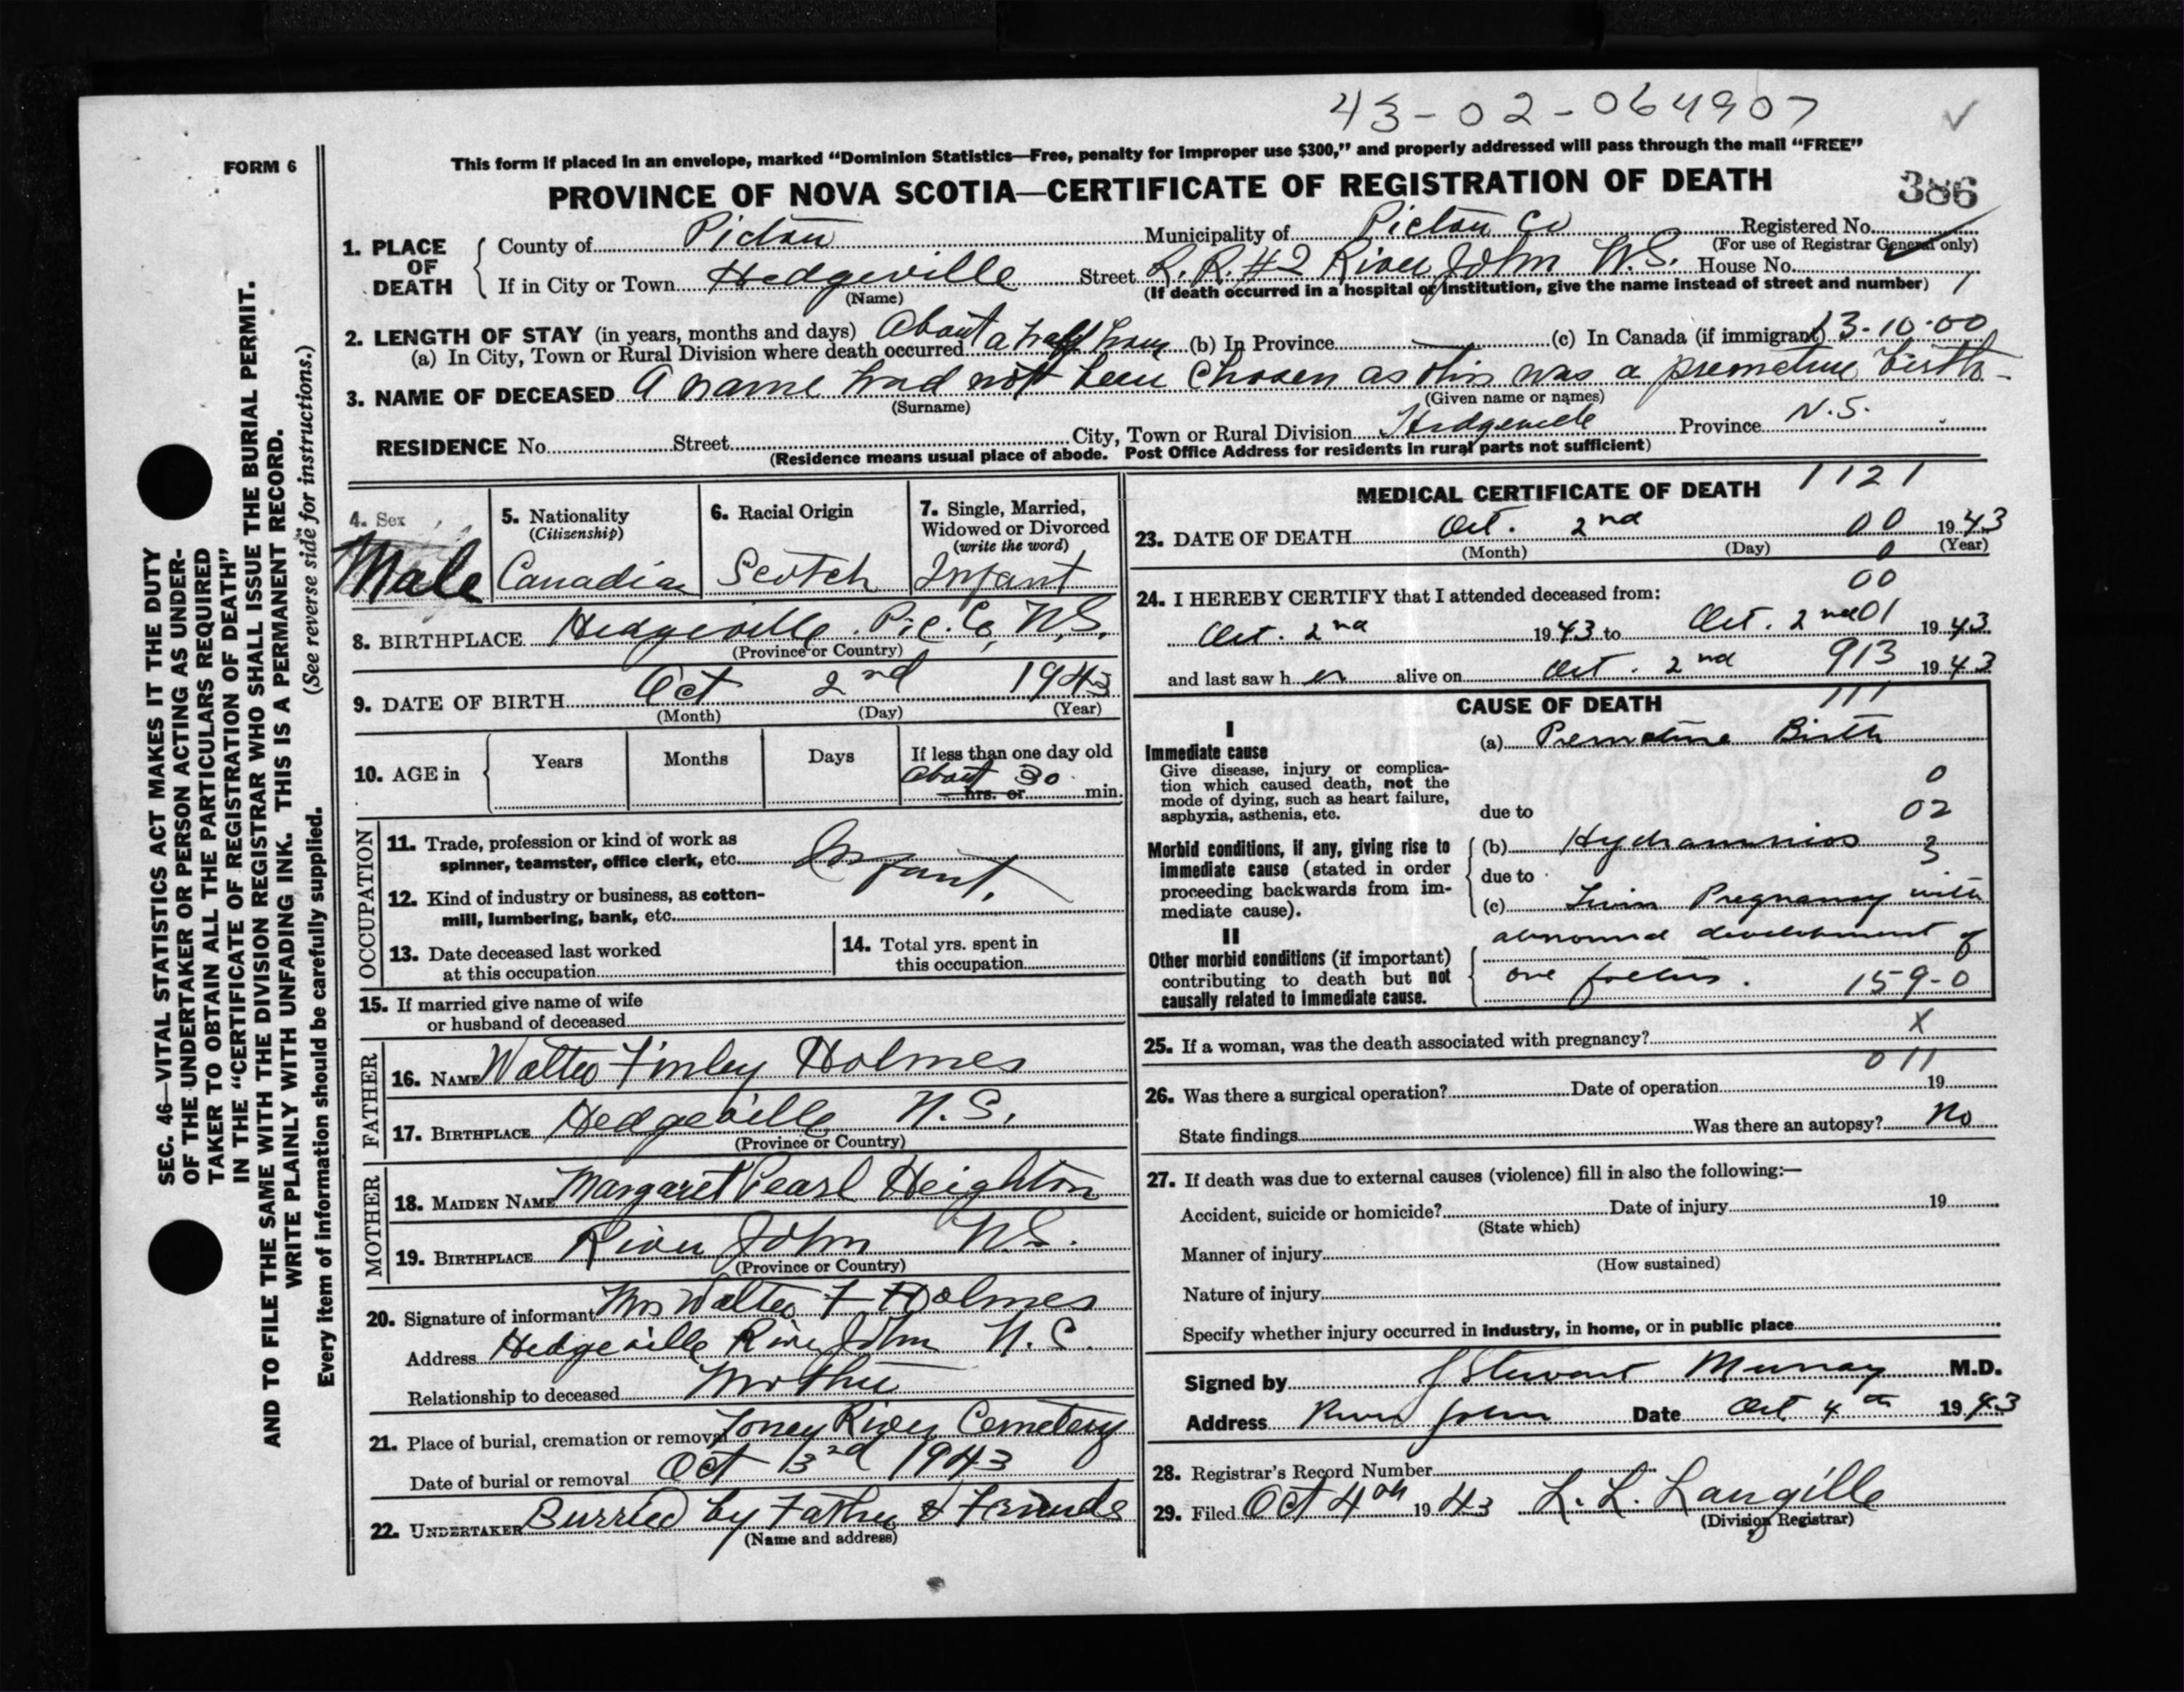 43-02-064907
This form if placed in an envelope, marked “Dominion Statistics—Free, penalty for improper use $300,” and properly addressed will pass through the mail “FREE”
FORM 6
PROVINCE OF NOVA SCOTIA—CERTIFICATE OF REGISTRATION OF DEATH
386
1. PLACE OF DEATH County of Pictou Municipality of Pictou Co Registered No.
(For use of Registrar General only)
If in City or Town Hedgeville Street R. R. #2 River John N.S. House No.
(Name) (If death occurred in a hospital or institution, give the name instead of street and number) 1
2. LENGTH OF STAY (in years, months and days)
(a) In City, Town or Rural Division where death occurred About a half hour (b) In Province (c) In Canada (if immigrant) 13-10-00
3. NAME OF DECEASED A name had not been chosen as this was a premature birth-
(Surname) (Given name or names)
RESIDENCE No. Street City, Town or Rural Division Hedgeville Province N.S.
(Residence means usual place of abode. Post Office Address for residents in rural parts not sufficient)
SEC. 46—VITAL STATISTICS ACT MAKES IT THE DUTY
OF THE UNDERTAKER OR PERSON ACTING AS UNDER-
TAKER TO OBTAIN ALL THE PARTICULARS REQUIRED
IN THE “CERTIFICATE OF REGISTRATION OF DEATH”
AND TO FILE THE SAME WITH THE DIVISION REGISTRAR WHO SHALL ISSUE THE BURIAL PERMIT.
WRITE PLAINLY WITH UNFADING INK. THIS IS A PERMANENT RECORD.
Every item of information should be carefully supplied. (See reverse side for instructions.)
4. Sex
Male
5. Nationality
(Citizenship)
Canadian
6. Racial Origin
Scotch
7. Single, Married,
Widowed or Divorced
(write the word)
Infant
8. BIRTHPLACE Hedgeville. Pic. Co, N.S.
(Province or Country)
9. DATE OF BIRTH Oct 2nd 1943
(Month) (Day) (Year)
10. AGE in Years Months Days If less than one day old
About 30
hrs. or min.
OCCUPATION
11. Trade, profession or kind of work as
spinner, teamster, office clerk, etc. Infant.
12. Kind of industry or business, as cotton-
mill, lumbering, bank, etc.
13. Date deceased last worked
at this occupation
14. Total yrs. spent in
this occupation
15. If married give name of wife
or husband of deceased
FATHER
16. NAME Walter Finley Holmes
17. BIRTHPLACE Hedgeville N.S.
(Province or Country)
MOTHER
18. MAIDEN NAME Margaret Pearl Heighton
19. BIRTHPLACE River John N.S.
(Province or Country)
20. Signature of informant Mrs Walter F Holmes
Address Hedgeville River John N.S.
Relationship to deceased Mother
21. Place of burial, cremation or removal Toney River Cemetery
Date of burial or removal Oct 3rd 1943
22. UNDERTAKER Burried by Father & Friends
(Name and address)
MEDICAL CERTIFICATE OF DEATH 1121
23. DATE OF DEATH Oct. 2nd 00 1943
(Month) (Day) 0 (Year)
00
24. I HEREBY CERTIFY that I attended deceased from:
Oct. 2nd 1943 to Oct. 2nd 01 1943
and last saw h er alive on Oct. 2nd 913 1943
111
CAUSE OF DEATH
I
Immediate cause
Give disease, injury or complica-
tion which caused death, not the
mode of dying, such as heart failure,
asphyxia, asthenia, etc.
(a) Premature Birth
0
due to 02
Morbid conditions, if any, giving rise to
immediate cause (stated in order
proceeding backwards from im-
mediate cause).
(b) Hydramnios 3
due to
(c) Twin Pregnancy with
II
Other morbid conditions (if important)
contributing to death but not
causally related to immediate cause.
abnormal development of
one foetus. 159-0
25. If a woman, was the death associated with pregnancy? X
011
26. Was there a surgical operation? Date of operation 19
State findings Was there an autopsy? No
27. If death was due to external causes (violence) fill in also the following:—
Accident, suicide or homicide? Date of injury 19
(State which)
Manner of injury
(How sustained)
Nature of injury
Specify whether injury occurred in industry, in home, or in public place
Signed by J Stewart Murray M.D.
Address River John Date Oct 4th 1943
28. Registrar's Record Number
29. Filed Oct 4th 1943 L. L. Langille
(Division Registrar)